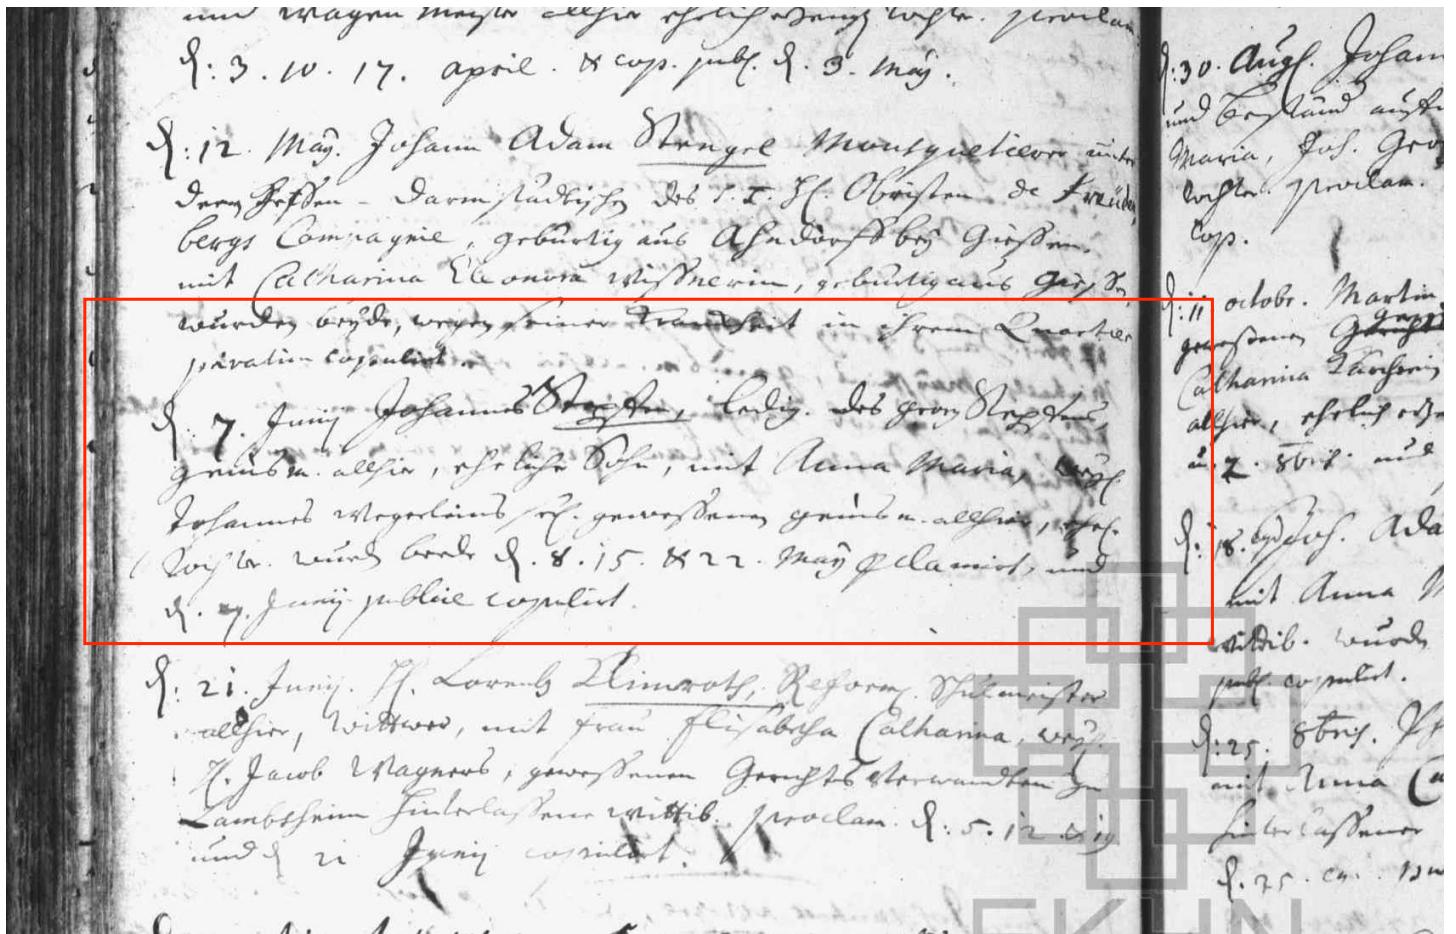 und Wagen Meister allhier ehelich tochter. proclam.
d: 3. 10. 17. april. & cop. publ. d. 3. May.
d: 12. May. Johann Adam Stengel Mousquetierer unter
dem Hessen-Darmstädtischen des S. T. H. Obristen de Freüden
bergs Compagnie, gebürtig aus Ahndorff bey Giessen.
mit Catharina Eleonora Wissnerin, gebürtig aus Giessen,
wurden beyde, wegen seiner Kranckheit in ihrem Quartier
privatim copulirt.
d. 7. Junij Johannes Stepffen, ledig. des Georg Stepffens,
gemsm. allhier, eheliche Sohn, mit Anna Maria, weyl.
Johannes Wegerleins sel. gewessenen gemsm. allhier, ehel.
Tochter. wurd beede d. 8. 15. & 22. May pclamirt, und
d. 7. Junij publice copulirt.
d: 21. Junij. H. Lorentz Klimroth, Reform. Schulmeister
allhier, Wittwer, mit frau Elisabetha Catharina, weyl.
H. Jacob Wagners, gewessenen Gerichts Verwandten zu
Lambsheim hinterlassene wittib. proclam. d. 5. 12 & 19
und d 21 Junij copulirt.
d: 30. Aug. Johann
und
Maria, Joh. Geor
tochter. proclam.
cop.
d: 11 octobr. Martin
gewessenen
Catharina
allhier, ehelich
u. 7. 8br. und
d: 18. Joh. Ada
mit Anna M
wittib. wurden
publ. copulirt.
d: 25. 8bris.
mit Anna Ca
hinterlassener
d. 25.
EKHN